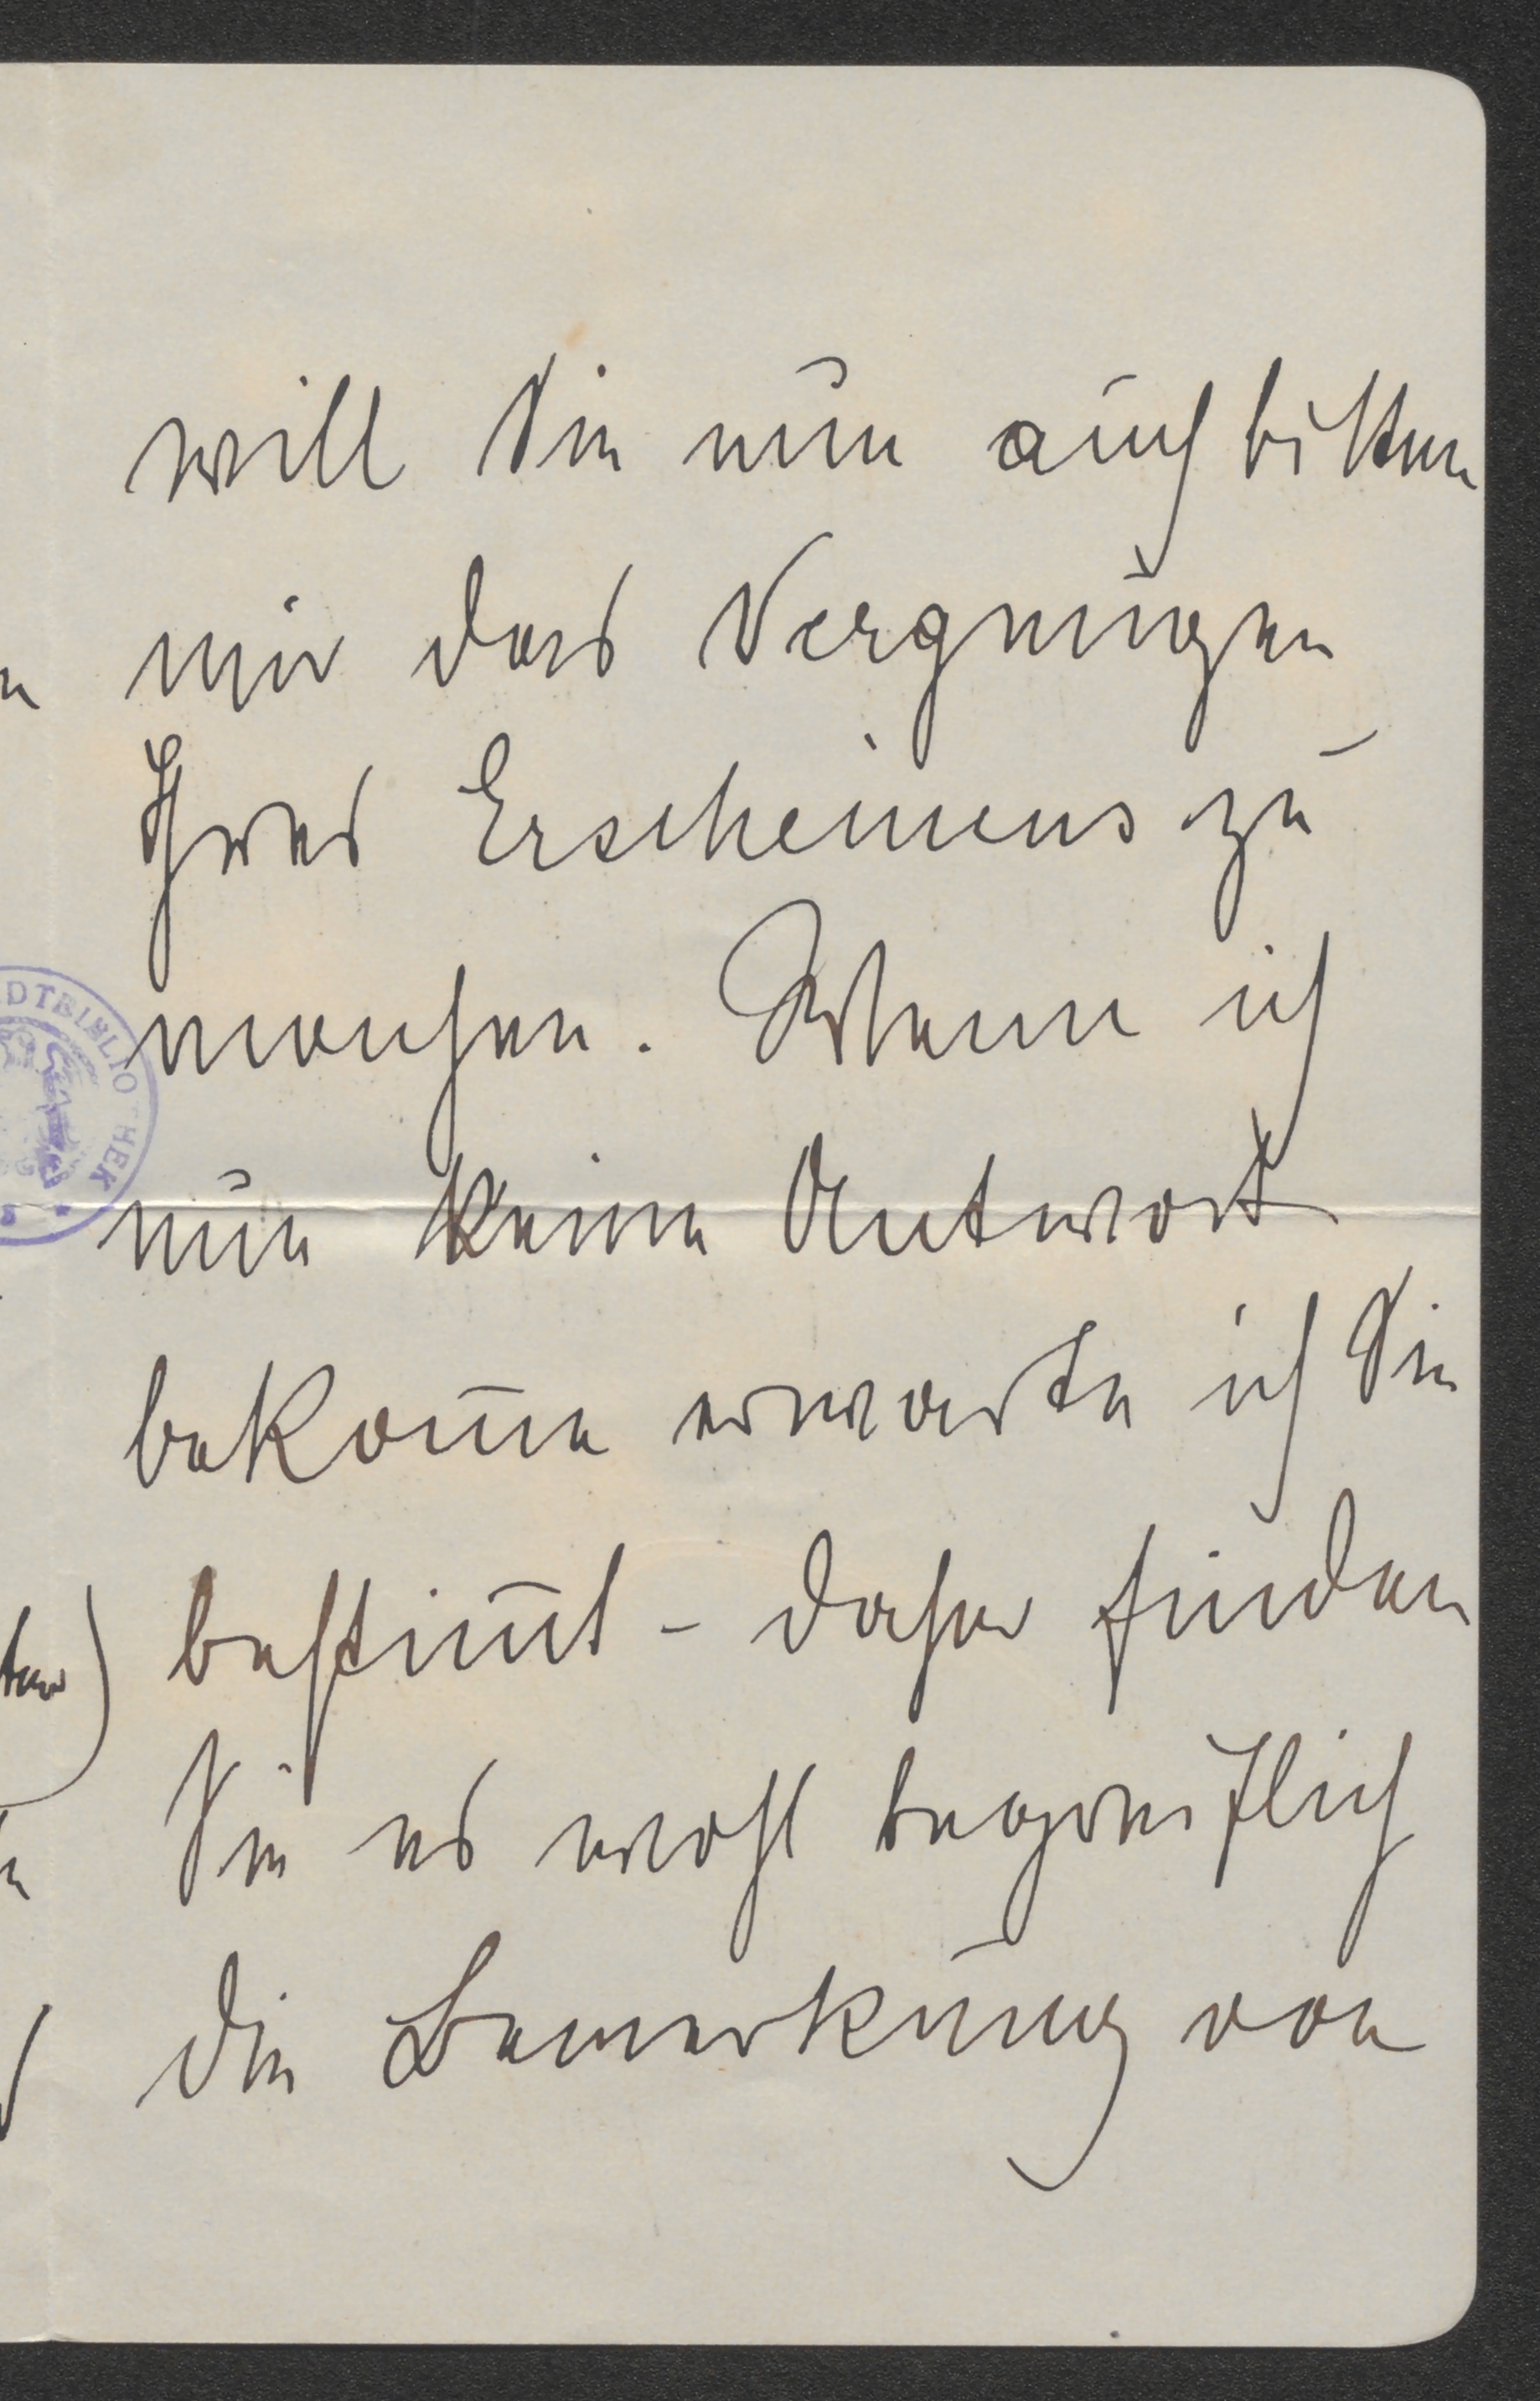 will Sie nun auch bitten
mir das Vergnügen
Ihres Erscheinens zu
machen. Wenn ich
nun keine Antwort
bekom̄e erwarte ich Sie
bestim̄t - daher finden
Sie es wohl begreiflich
die Bemerkung von
DTBIBLIOTHEK